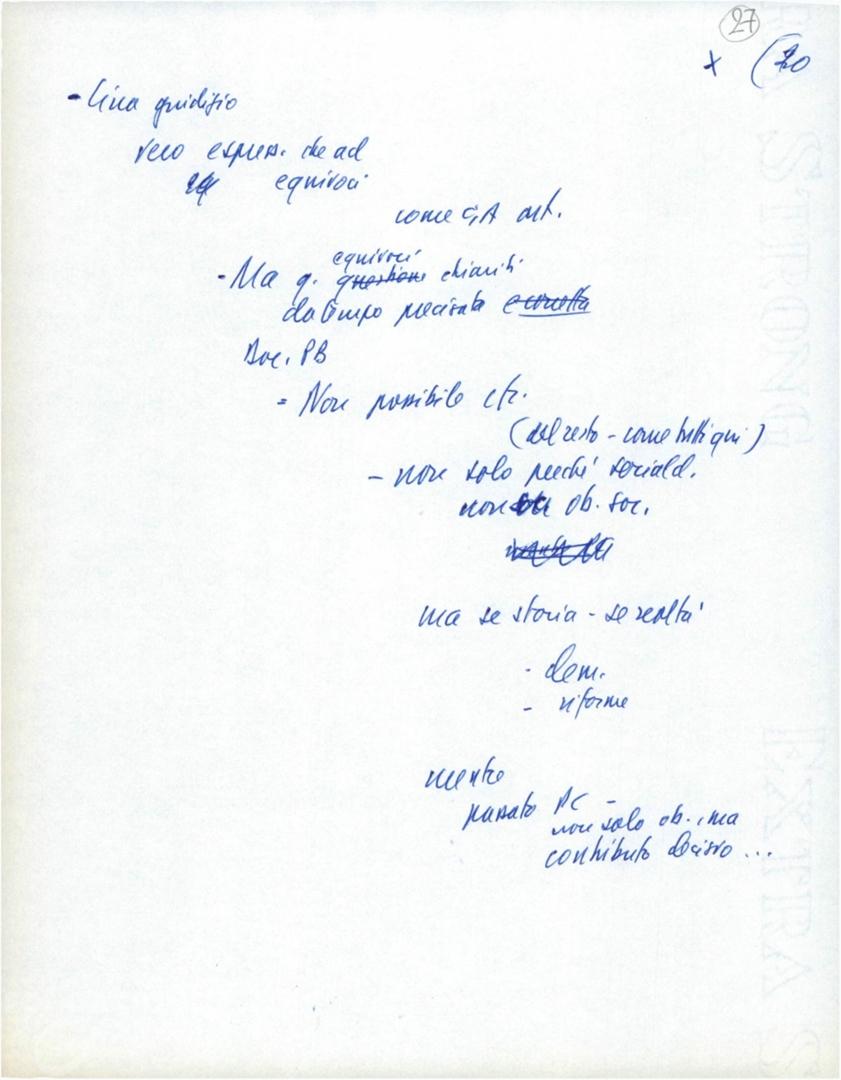 27
+ (20
- Circa giudizio
vero espress. che ad
equivoci
come già art.
equivoci
- Ma q. questione chiariti
da tempo precisata e corretta
Doc. PB
= Non possibile cfr.
(del resto - come tutti qui)
- non solo perché sociald.
non ob. soc.
ma se storia - se realtà
- dem.
- riforme
mentre
passato PC -
non solo ob., ma
contributo decisivo ...